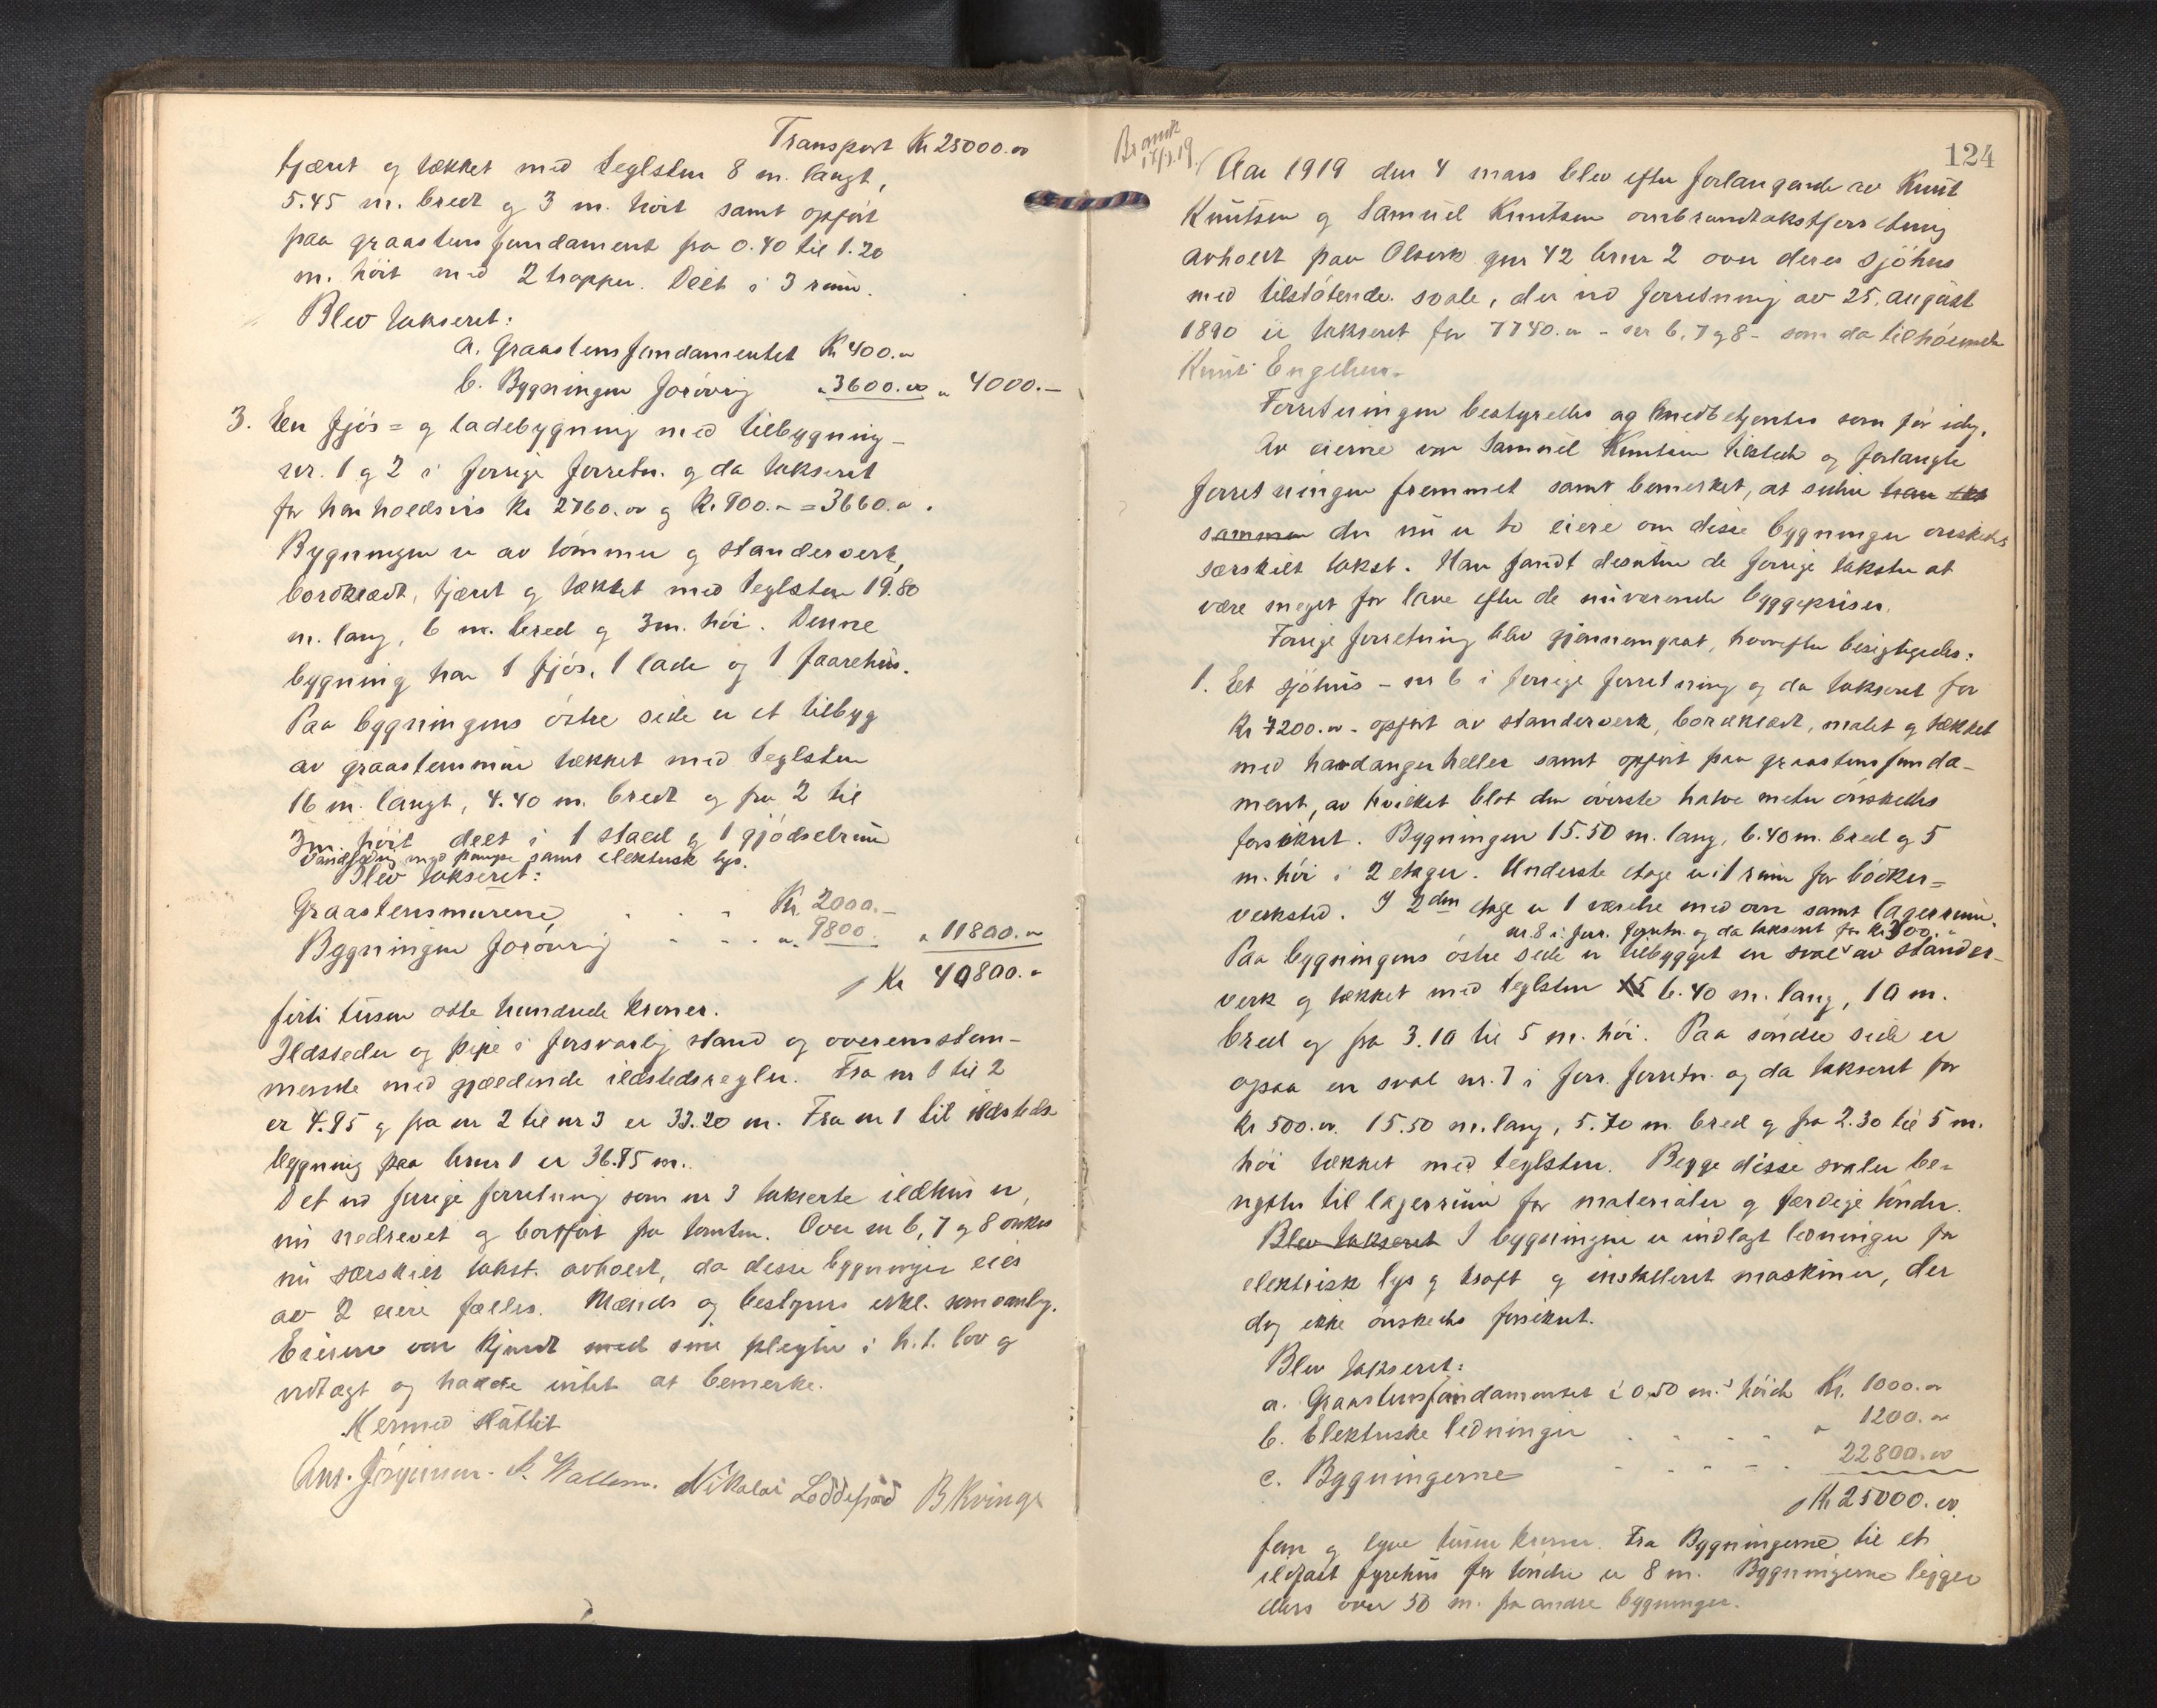 Transport Kr 25000.00
tjæret og tækket med teglsten 8 m. langt,
5.45 m. bredt og 3 m. höit samt opfört
paa graastensfundament fra 0.40 til 1.20
m. höit med 2 trapper. Delt i 3 rum.
Blev takseret:
a. Graastensfundamentet Kr 400.00
b. Bygningen forövrig " 3600.00 " 4000.—
3. En fjös= og ladebygning med tilbygning –
nr. 1 og 2 i forrige forretn. og da takseret
for henholdsvis Kr 2760.00 og Kr. 900.– = 3660.00.
Bygningen er av tömmer og standerverk,
bordklædt, tjæret og tækket med teglsten 19.80
m. lang, 6 m. bred og 3 m. höi. Denne
bygning har 1 fjös, 1 lade og 1 faarehus.
Paa bygningens östre side er et tilbyg
av graastensmur tækket med teglsten
16 m. langt, 4.40 m. bredt og fra 2 til
3 m. höit delt i 1 stald og 1 gjödselrum
med pumpe samt elektrisk lys.
Blev takseret:
Graastensmurene . . . Kr. 2000.–
Bygningen forövrig . . . " 9800. " 11800.00
Kr 40800.00
firti tusen otte hundrede kroner.
Ildsteder og pipe i forsvarlig stand og overenstem-
mende med gjældende ildstedsregler. Fra nr 1 til 2
er 4.95 og fra nr 2 til nr 3 er 33.20 m. Fra nr 1 til ildsteds
bygning paa brnr 1 er 36.85 m.
Det ved forrige forretning som nr 3 takserte ildhus er
nu nedrevet og bortfört fra tomten. Over nr 6, 7 og 8 önskes
nu særskilt takst avholdt, da disse bygninger eies
av 2 eiere fælles. Mænds og bestyrers erkl. som vanlig.
Eieren var kjendt med sine pligter i h.t. lov og
vedtægt og hadde intet at bemerke.
Hermed sluttet
Ans. Jörgensen. S. Wallem. Nikolai Loddefjord B Kvinge
124
Aar 1919 den 4 mars blev efter forlangende av Knut
Knutsen og Samuel Knutsen ombrandtakstforretning
avholdt paa Olsvik gnr 42 brnr 2 over deres sjöhus
med tilstötende svale, der ved forretning av 25. august
1890 er takseret for 7740.00 – nr 6, 7 og 8 – som da tilhörende
Knut Engelsen.
Forretningen bestyredes og medbetjentes som för idag.
Av eierne var Samuel Knutsen tilstede og forlangte
forretningen fremmet samt bemerket, at siden han
sammen der nu er to eiere om disse bygninger önskedes
særskilt takst. Han fandt desuten de forrige takster at
være meget for lave efter de nuværende byggepriser.
Forrige forretning blev gjennemgaat, hvorefter besigtigedes:
1. Et sjöhus – nr 6 i forrige forretning og da takseret for
Kr 7200.00 – opfört av standerverk, bordklædt, malet og tækket
med hardangerheller samt opfört paa graastensfunda-
ment, av hvilket blot den överste halve meter önskedes
forsikret. Bygningen 15.50 m. lang, 6.40 m. bred og 5
m. höi i 2 etager. Underste etage er 1 rum for böcker=
verksted. I 2den etage er 1 værelse med ovn samt lagerrum.
nr. 8 i forr. forretn. og da takseret for Kr 300.–
Paa bygningens östre side er tilbygget en sval av stander-
verk og tækket med teglsten 6.40 m. lang, 10 m.
bred og fra 3.10 til 5 m. höi. Paa söndre side er
ogsaa en sval nr. 7 i forr. forretn. og da takseret for
Kr 500.00. 15.50 m. lang, 5.70 m. bred og fra 2.30 til 5 m.
höi tækket med teglsten. Begge disse svaler be-
nyttes til lagerrum for materialer og færdige tönder.
Blev takseret I bygningene er indlagt ledninger for
elektrisk lys og kraft og installeret maskiner, der
dog ikke önskedes forsikret.
Blev takseret:
a. Graastensfundamentet i 0.50 m.s höide Kr. 1000.00
b. Elektriske ledninger . . . . " 1200.00
c. Bygningerne . . . . 22800.00
Kr 25000.00
fem og tyve tusen kroner. Fra Bygningerne til et
ildfast fyrehus for tönder er 8 m. Bygningerne ligger
ellers over 50 m. fra andre bygninger.